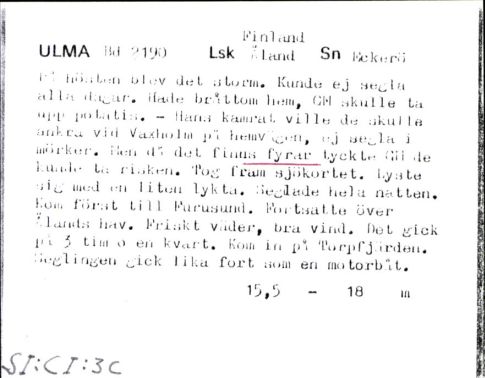 Finland
ULMA Bd 2190 Lsk Åland Sn Eckerö
På hösten blev det storm. Kunde ej segla
alla dagar. Hade bråttom hem, GM skulle ta
upp potatis. - Hans kamrat ville de skulle
ankra vid Vaxholm på hemvägen, ej segla i
mörker. Men då det finns fyrar tyckte GM de
kunde ta risken. Tog fram sjökortet. Lyste
sig med en liten lykta. Seglade hela natten.
Kom först till Furusund. Fortsatte över
Ålands hav. Friskt väder, bra vind. Det gick
på 3 tim o en kvart. Kom in på Torpfjärden.
Seglingen gick lika fort som en motorbåt.
15,5 - 18 m
SI:CI:3C